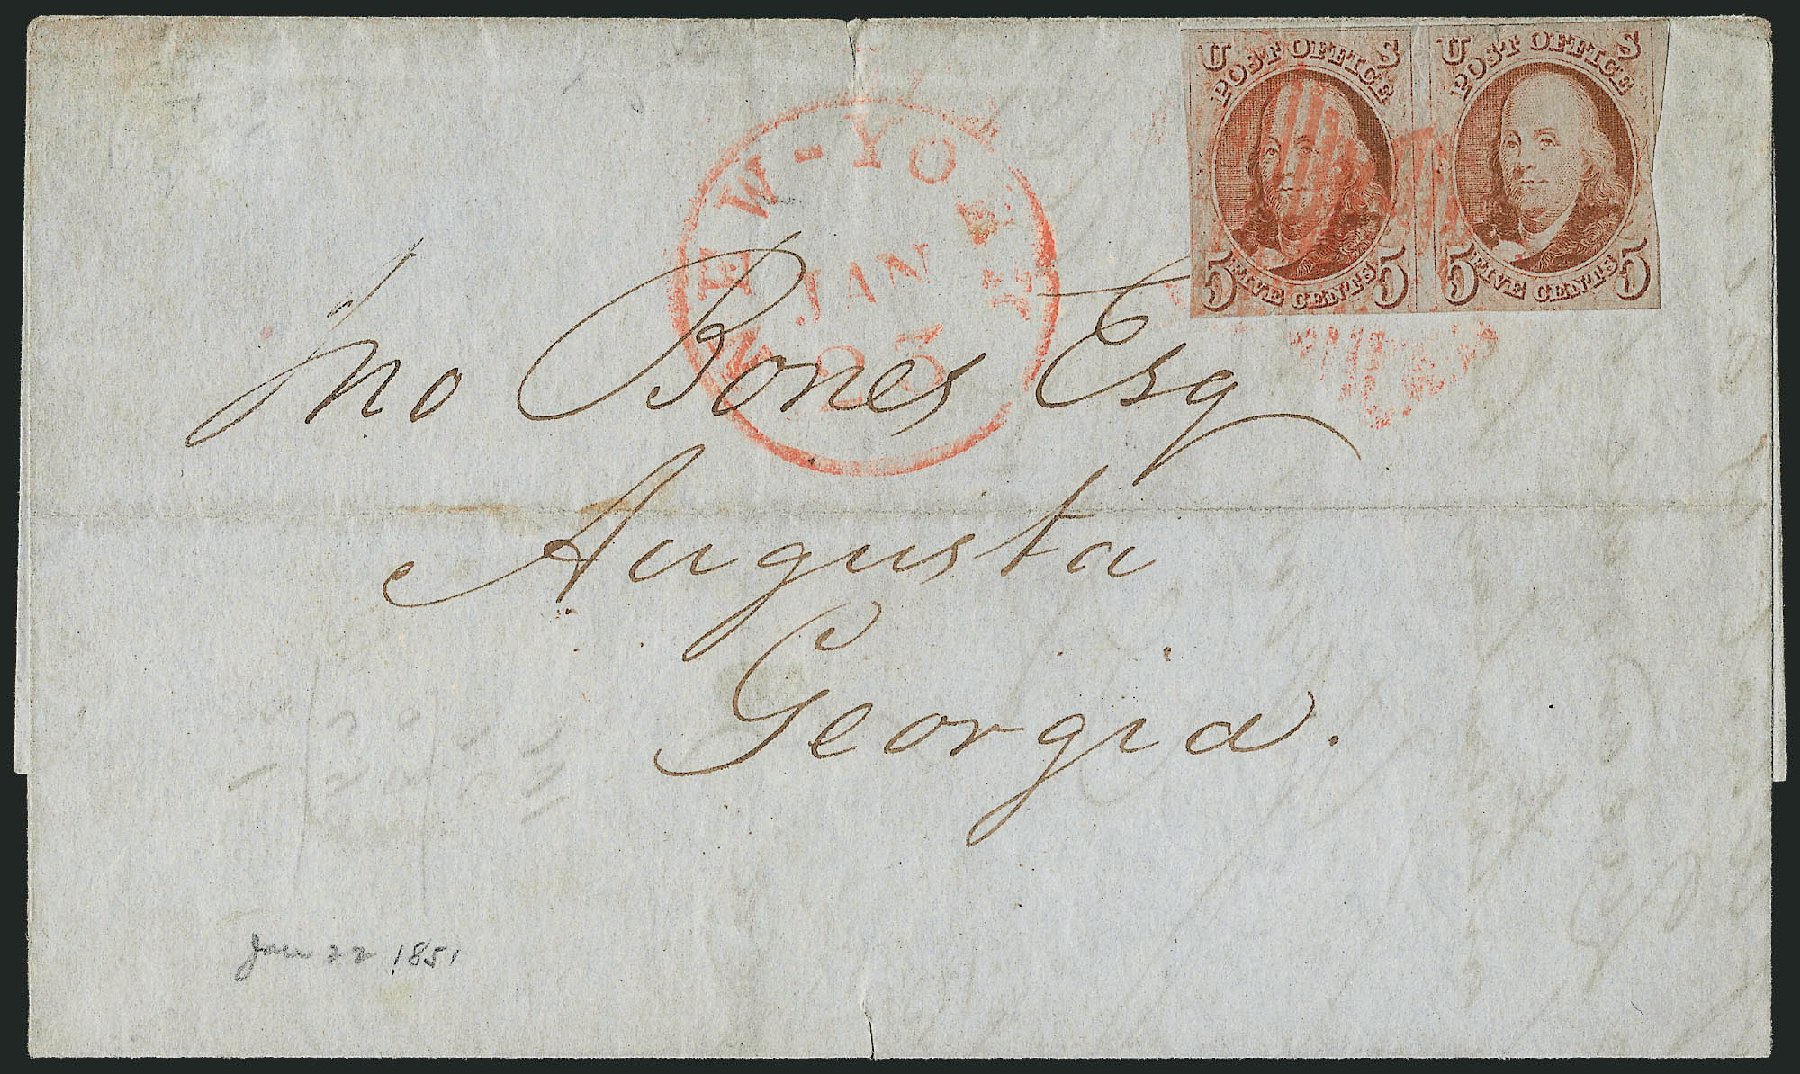 U S U S
POST OFFICE POST OFFICE
5 FIVE CENTS 5 5 FIVE CENTS 5
NEW-YORK N.Y.
JAN
23
Jno Bones Esq
Augusta
Georgia.
Jan 22 1851